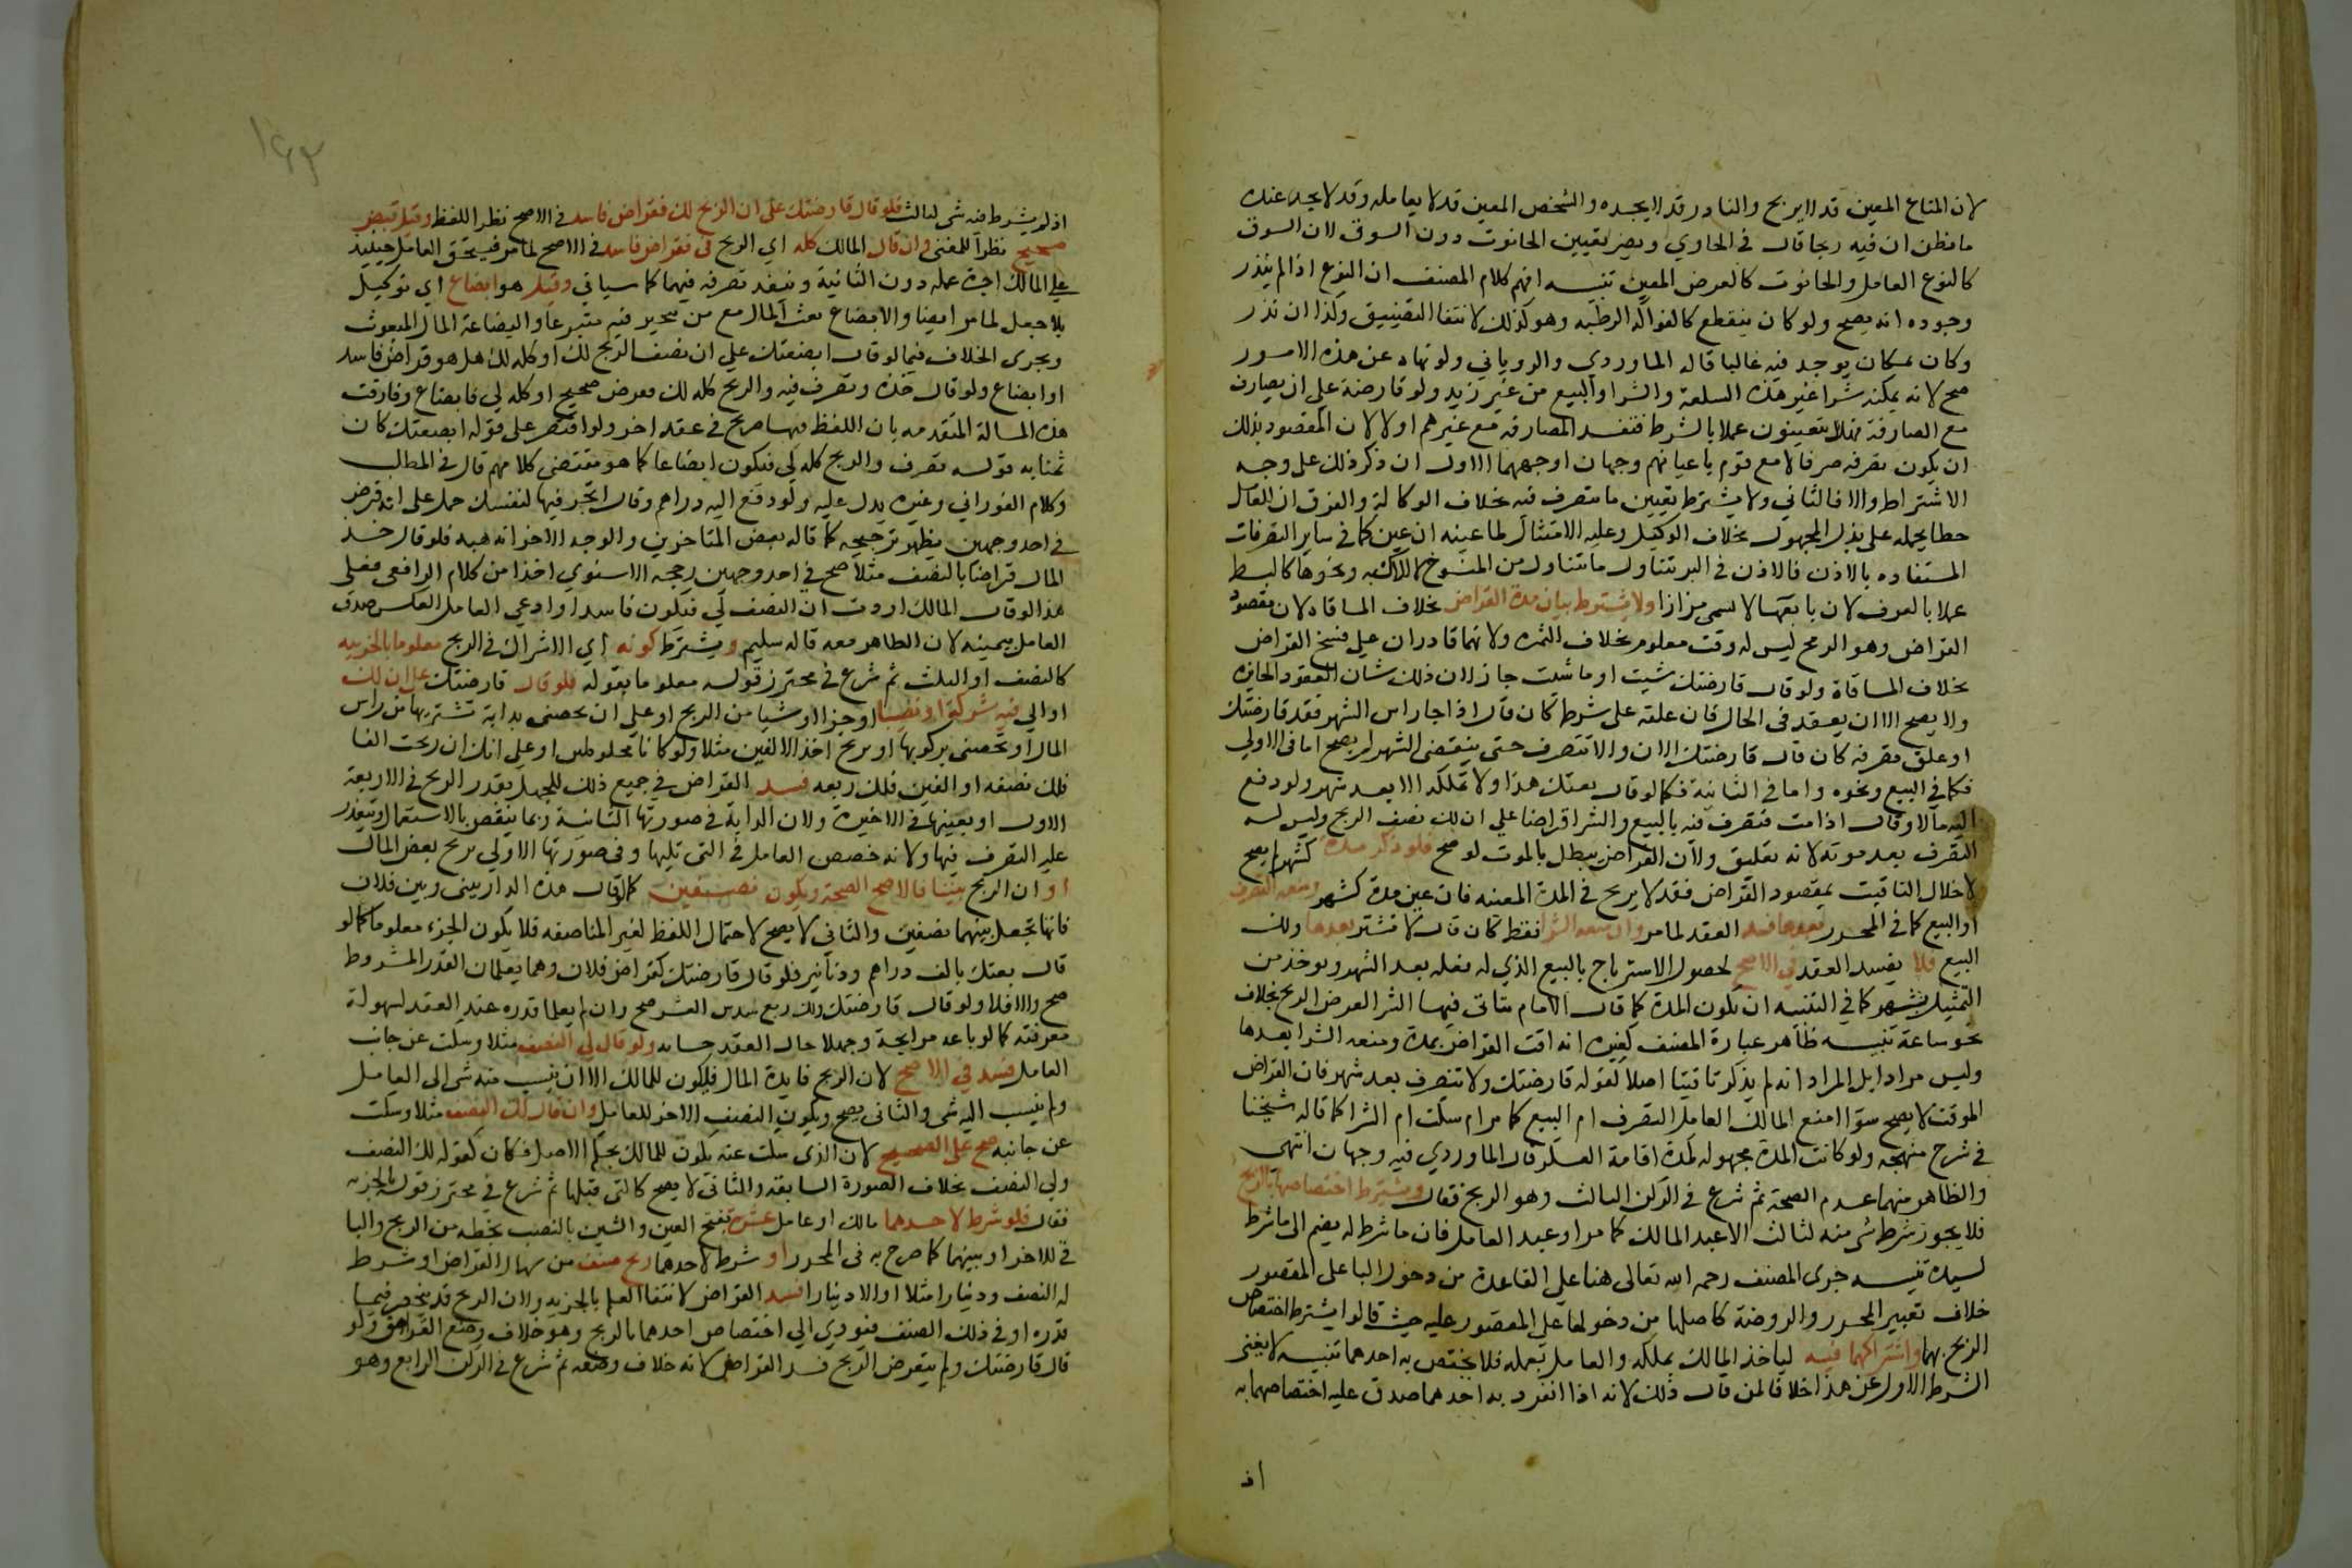 لان المتاع المعين قد لا يربح والنادر قد لا يجده والشخص المعين قد لا يعامله وقد لا يجد عنده
ما يظن ان فيه ربحا قال في الحاوي ويضر تعيين الحانوت دون السوق لان السوق
كالنوع العامل والحانوت كالعرض المعين تنبيه افهم كلام المصنف ان النوع اذا لم يندر
وجوده انه يصح ولو كان ينقطع كالفواكه الرطبة وهو كذلك لانتفا التضييق وكذا ان ندر
وكان بمكان يوجد فيه غالبا قاله الماوردي والروياني ولو نهاه عن هذه الامور
صح لانه يمكنه شرا غير هذه السلعة والشرا والبيع من غير زيد ولو قارضه على ان يصارف
مع الصارفة مثلا يتعينون عملا بالشرط فتفسد المصارفة مع غيرهم او لا لان المقصود بذلك
ان يكون تصرفه صرفا لا مع قوم باعيانهم وجهان اوجههما الاول ان ذكر ذلك على وجه
الاشتراط والا فالثاني ولا يشترط تعيين ما يتصرف فيه بخلاف الوكالة والفرق ان للعامل
حظا يحمله على بذل المجهود بخلاف الوكيل وعليه الامتثال لما عينه ان عين كما في ساير التصرفات
المستفاده بالاذن فالاذن في البز يتناول ما يتناول من المنسوخ لا الاكسيه ونحوها كالبسط
عملا بالعرف لان بايعها لا يسمى بزازا ولا يشترط بيان مدة القراض بخلاف المساقاه لان مقصود
القراض وهو الربح ليس له وقت معلوم بخلاف الثمره ولانهما قادران على فسخ القراض
بخلاف المساقاة ولو قال قارضتك شيت او ما شئت جاز لان ذلك شان العقود الجايزه
ولا يصح الا ان يعقد في الحال فان علقه على شرط كان قال اذا جا راس الشهر فقد قارضتك
او علق تصرفه كان قال قارضتك الان ولا تتصرف حتى ينقضي الشهر لم يصح اما في الاولى
فكما في البيع ونحوه واما في الثانية فكما لو قال بعتك هذا ولا تملكه الا بعد شهر ولو دفع
اليه مالا وقال اذا مت فتصرف فيه بالبيع والشرا قراضا على ان لك نصف الربح وليس له
التصرف بعد موته لانه تعليق ولان القراض يبطل بالموت لو صح فلو ذكر مدة كشهر لم يصح
لاخلال التاقيت بمقصود القراض فقد لا يربح في المدة المعينه فان عين مدة كشهر ومنعه التصرف
او البيع كما في المحرر بعدها فسد العقد لما مر وان منعه الشرا فقط كان قال لا تشتر بعدها ولك
البيع فلا يفسد العقد في الاصح لحصول الاسترباح بالبيع الذي له فعله بعد الشهر ويوخذ من
التمثيل بشهر كما في التنبيه ان تكون المدة كما قال الامام يتاتى فيها الشرا لغرض الربح بخلاف
نحو ساعة تنبيه ظاهر عبارة المصنف كغيره انه اقت القراض بمدة ومنعه الشرا بعدها
وليس مرادا بل المراد انه لم يذكر تاقيتا اصلا كقوله قارضتك ولا تتصرف بعد شهر فان القراض
الموقت لا يصح سوا امنع المالك العامل التصرف ام البيع كما مر ام سكت ام الشرا كما قاله شيخنا
في شرح منهجه ولو كانت المدة مجهوله كمدة اقامة العسكر قال الماوردي فيه وجهان انتهى
والظاهر منهما عدم الصحة ثم شرع في الركن الثالث وهو الربح فقال ويشترط اختصاصهما بالربح
فلا يجوز شرط شي منه لثالث الا عبد المالك كما مر او عبد العامل فان ما شرط له يضم الى ما شرط
لسيده تنبيه جرى المصنف رحمه الله تعالى هنا على القاعدة من دخول البا على المقصور
خلاف تعبير المحرر والروضة كاصلها من دخولها على المقصور عليه حيث قالوا يشترط اختصاص
الربح بهما واشتراكهما فيه لياخذ المالك بملكه والعامل بعمله فلا يختص به احدهما تنبيه لا يغني
الشرط الاول عن هذا خلافا لمن قال ذلك لانه اذا انفرد به احدهما صدق عليه اختصاصهما به
اذ
١٤٣
اذ لم يشترط منه شي لثالث فلو قال قارضتك على ان الربح لك فقراض فاسد في الاصح نظرا للفظ وقيل قرض
صحيح نظرا للمعنى وان قال المالك كله اي الربح لي فقراض فاسد في الاصح لما مر فيستحق العامل حينيذ
على المالك اجرة عمله دون الثانية وينفذ تصرفه فيهما كما سياتي وقيل هو ابضاع اي توكيل
بلا جعل لما مر ايضا والابضاع بعث المال مع من يتجر فيه متبرعا والبضاعة المال المبعوث
ويجرى الخلاف فيما لو قال ابضعتك على ان نصف الربح لك او كله لك هل هو قراض فاسد
او ابضاع ولو قال خذه وتصرف فيه والربح كله لك فقرض صحيح او كله لي فابضاع وفارقت
هذه المسالة المتقدمه بان اللفظ فيها صريح في عقد اخر ولو اقتصر على قوله ابضعتك كان
بمثابه قوله تصرف والربح كله لي فيكون ابضاعا كما هو مقتضى كلامهم قال في المطلب
وكلام الفوراني وغيره يدل عليه ولو دفع اليه دراهم وقال اتجر فيها لنفسك حمل على انه قرض
في احد وجهين يظهر ترجيحه كما قاله بعض المتاخرين والوجه الاخر انه هبه فلو قال خذ
المال قراضا بالنصف مثلا صح في احد وجهين رجحه الاسنوي اخذا من كلام الرافعي فعلى
هذا لو قال المالك اردت ان النصف لي فيكون فاسدا وادعى العامل العكس صدق
العامل بيمينه لان الظاهر معه قاله سليم ويشترط كونه اي الاشتراك في الربح معلوما بالجزييه
كالنصف او الثلث ثم شرع في محترز قوله معلوما بقوله فلو قال قارضتك على ان لك
او لي فيه شركة او نصيبا او جزا او شيا من الربح او على ان تخصني بدابة تشتريها من راس
المال او تخصني بركوبها او بربح احد الالفين مثلا ولو كانا مخلوطين او على انك ان ربحت الفا
فلك نصفه او الفين فلك ربعه فسد القراض في جميع ذلك للجهل بقدر الربح في الاربعة
الاول او بعينها في الاخيرة ولان الدابة في صورتها الثانية ربما ينقص بالاستعمال ويتعذر
عليه التصرف فيها ولانه خصص العامل في التي تليها وفي صورتها الاولى بربح بعض المال
او ان الربح بيننا فالاصح الصحة ويكون نصفين كما لو قال هذه الدار بيني وبين فلان
فانها تجعل بينهما نصفين والثاني لا يصح لاحتمال اللفظ لغير المناصفه فلا يكون الجزء معلوما كما لو
قال بعتك بالف دراهم ودنانير فلو قال قارضتك كقراض فلان وهما يعلمان القدر المشروط
صح والا فلا ولو قال قارضتك ولك ربع سدس العشر صح وان لم يعلما قدره عند العقد لسهولة
معرفته كما لو باعه مرابحة وجهلا حال العقد حسابه ولو قال لي النصف مثلا وسكت عن جانب
العامل فسد في الاصح لان الربح فايدة المال فيكون للمالك الا ان ينسب منه شي الى العامل
ولم ينسب اليه شي والثاني يصح ويكون النصف الاخر للعامل وان قال لك النصف مثلا وسكت
عن جانبه صح على الصحيح لان الذي سكت عنه يكون للمالك بحكم الاصل فكان كقوله لك النصف
ولي النصف بخلاف الصورة السابقه والثاني لا يصح كالتي قبلها ثم شرع في محترز قوله بالجزييه
فقال فلو شرط لاحدهما مالك او عامل عشرة بفتح العين والشين بالنصب بخطه من الربح والباقي
للاخر او بينهما كما صرح به في المحرر او شرط لاحدهما ربح صنف من مال القراض او شرط
له النصف ودينارا مثلا او الا دينارا فسد القراض لانتفا العلم بالجزييه ولان الربح قد ينحصر فيما
قدره او في ذلك الصنف فيودي الى اختصاص احدهما بالربح وهو خلاف وضع القراض ولو
قال قارضتك ولم يتعرض للربح فسد القراض لانه خلاف وضعه ثم شرع في الركن الرابع وهو